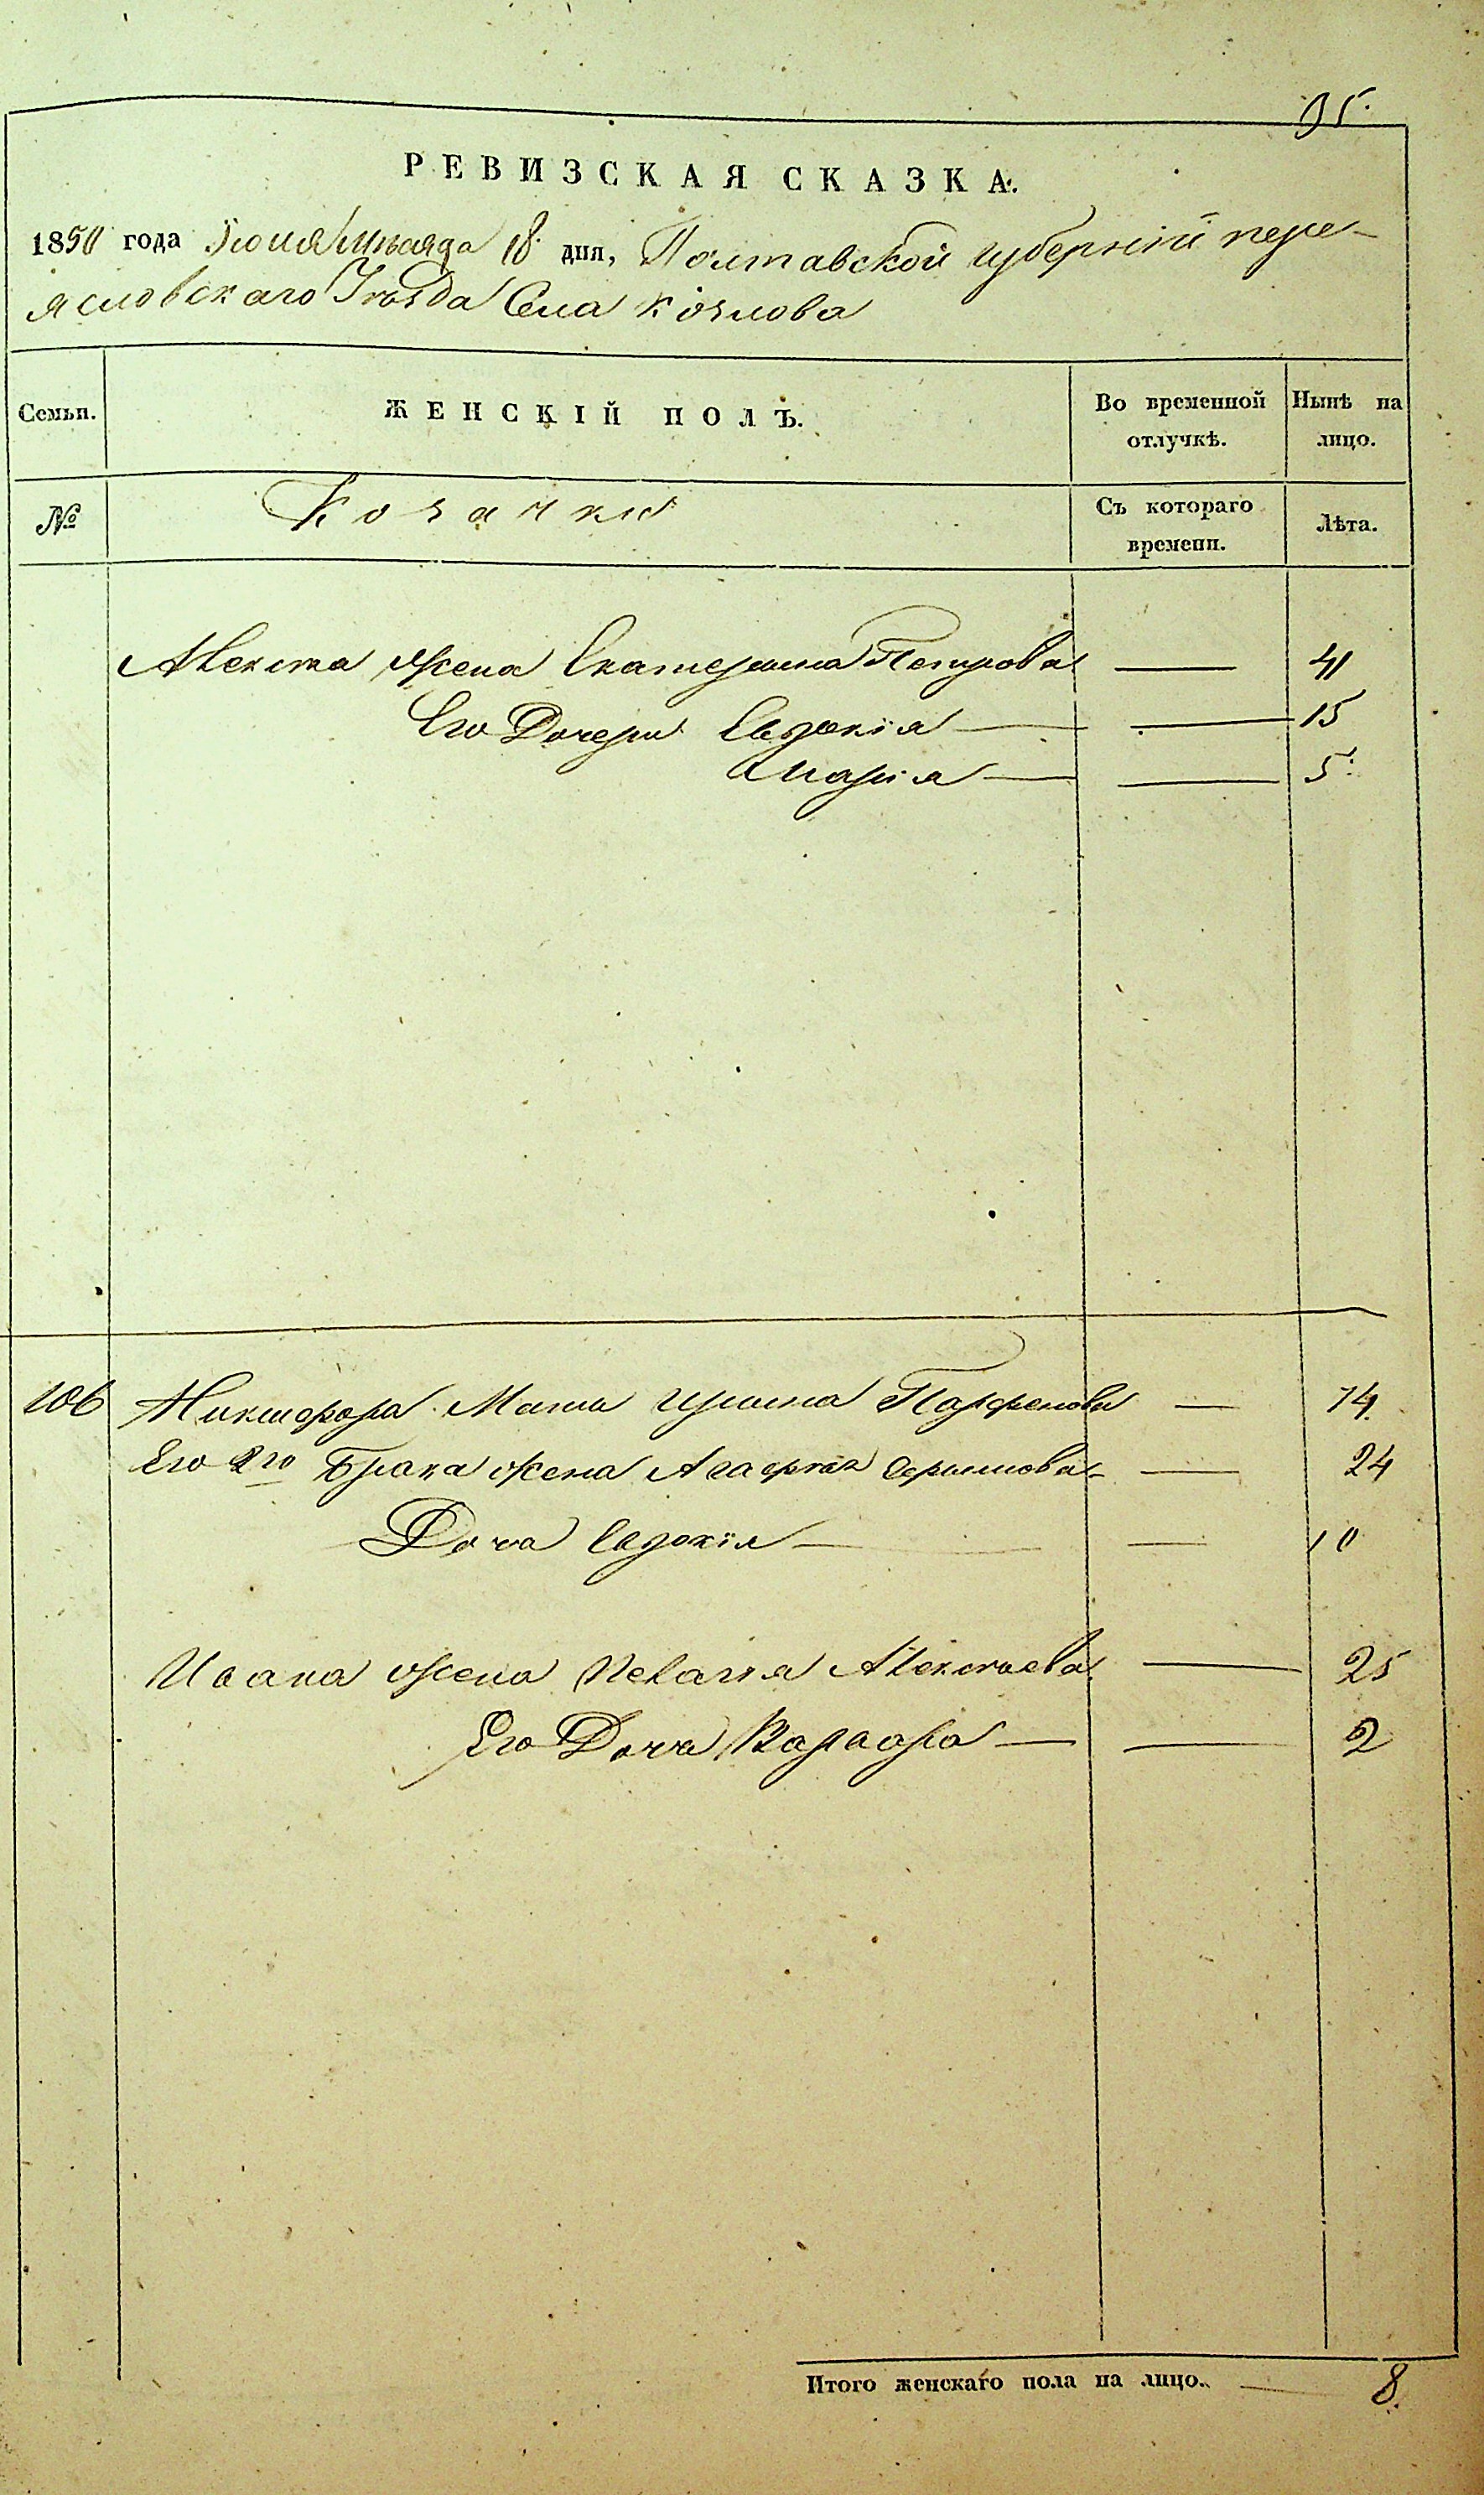 95.
РЕВИЗСКАЯ СКАЗКА.
1850 года Іюня Мѣсяца 18 дня, Полтавской Губерніи пере-
яславскаго Уѣзда Села Козлова
Семьи. ЖЕНСКІЙ ПОЛЪ. Во временной отлучкѣ. Нынѣ на лицо.
№ Козачки Съ котораго времени. Лѣта.
Алексѣя жена Екатерина Петрова — 41
Его Дочери Евдокія — — 15
Марія — — 5.
106 Никифора Мать Ирина Парфенова — 74.
Его 2го Брака жена Агафія — 24
Доча Евдокія — — 10
Ивана жена Пелагія Алексѣева — 25
Его Доча Варвара — — 2
Итого женскаго пола на лицо. — 8.